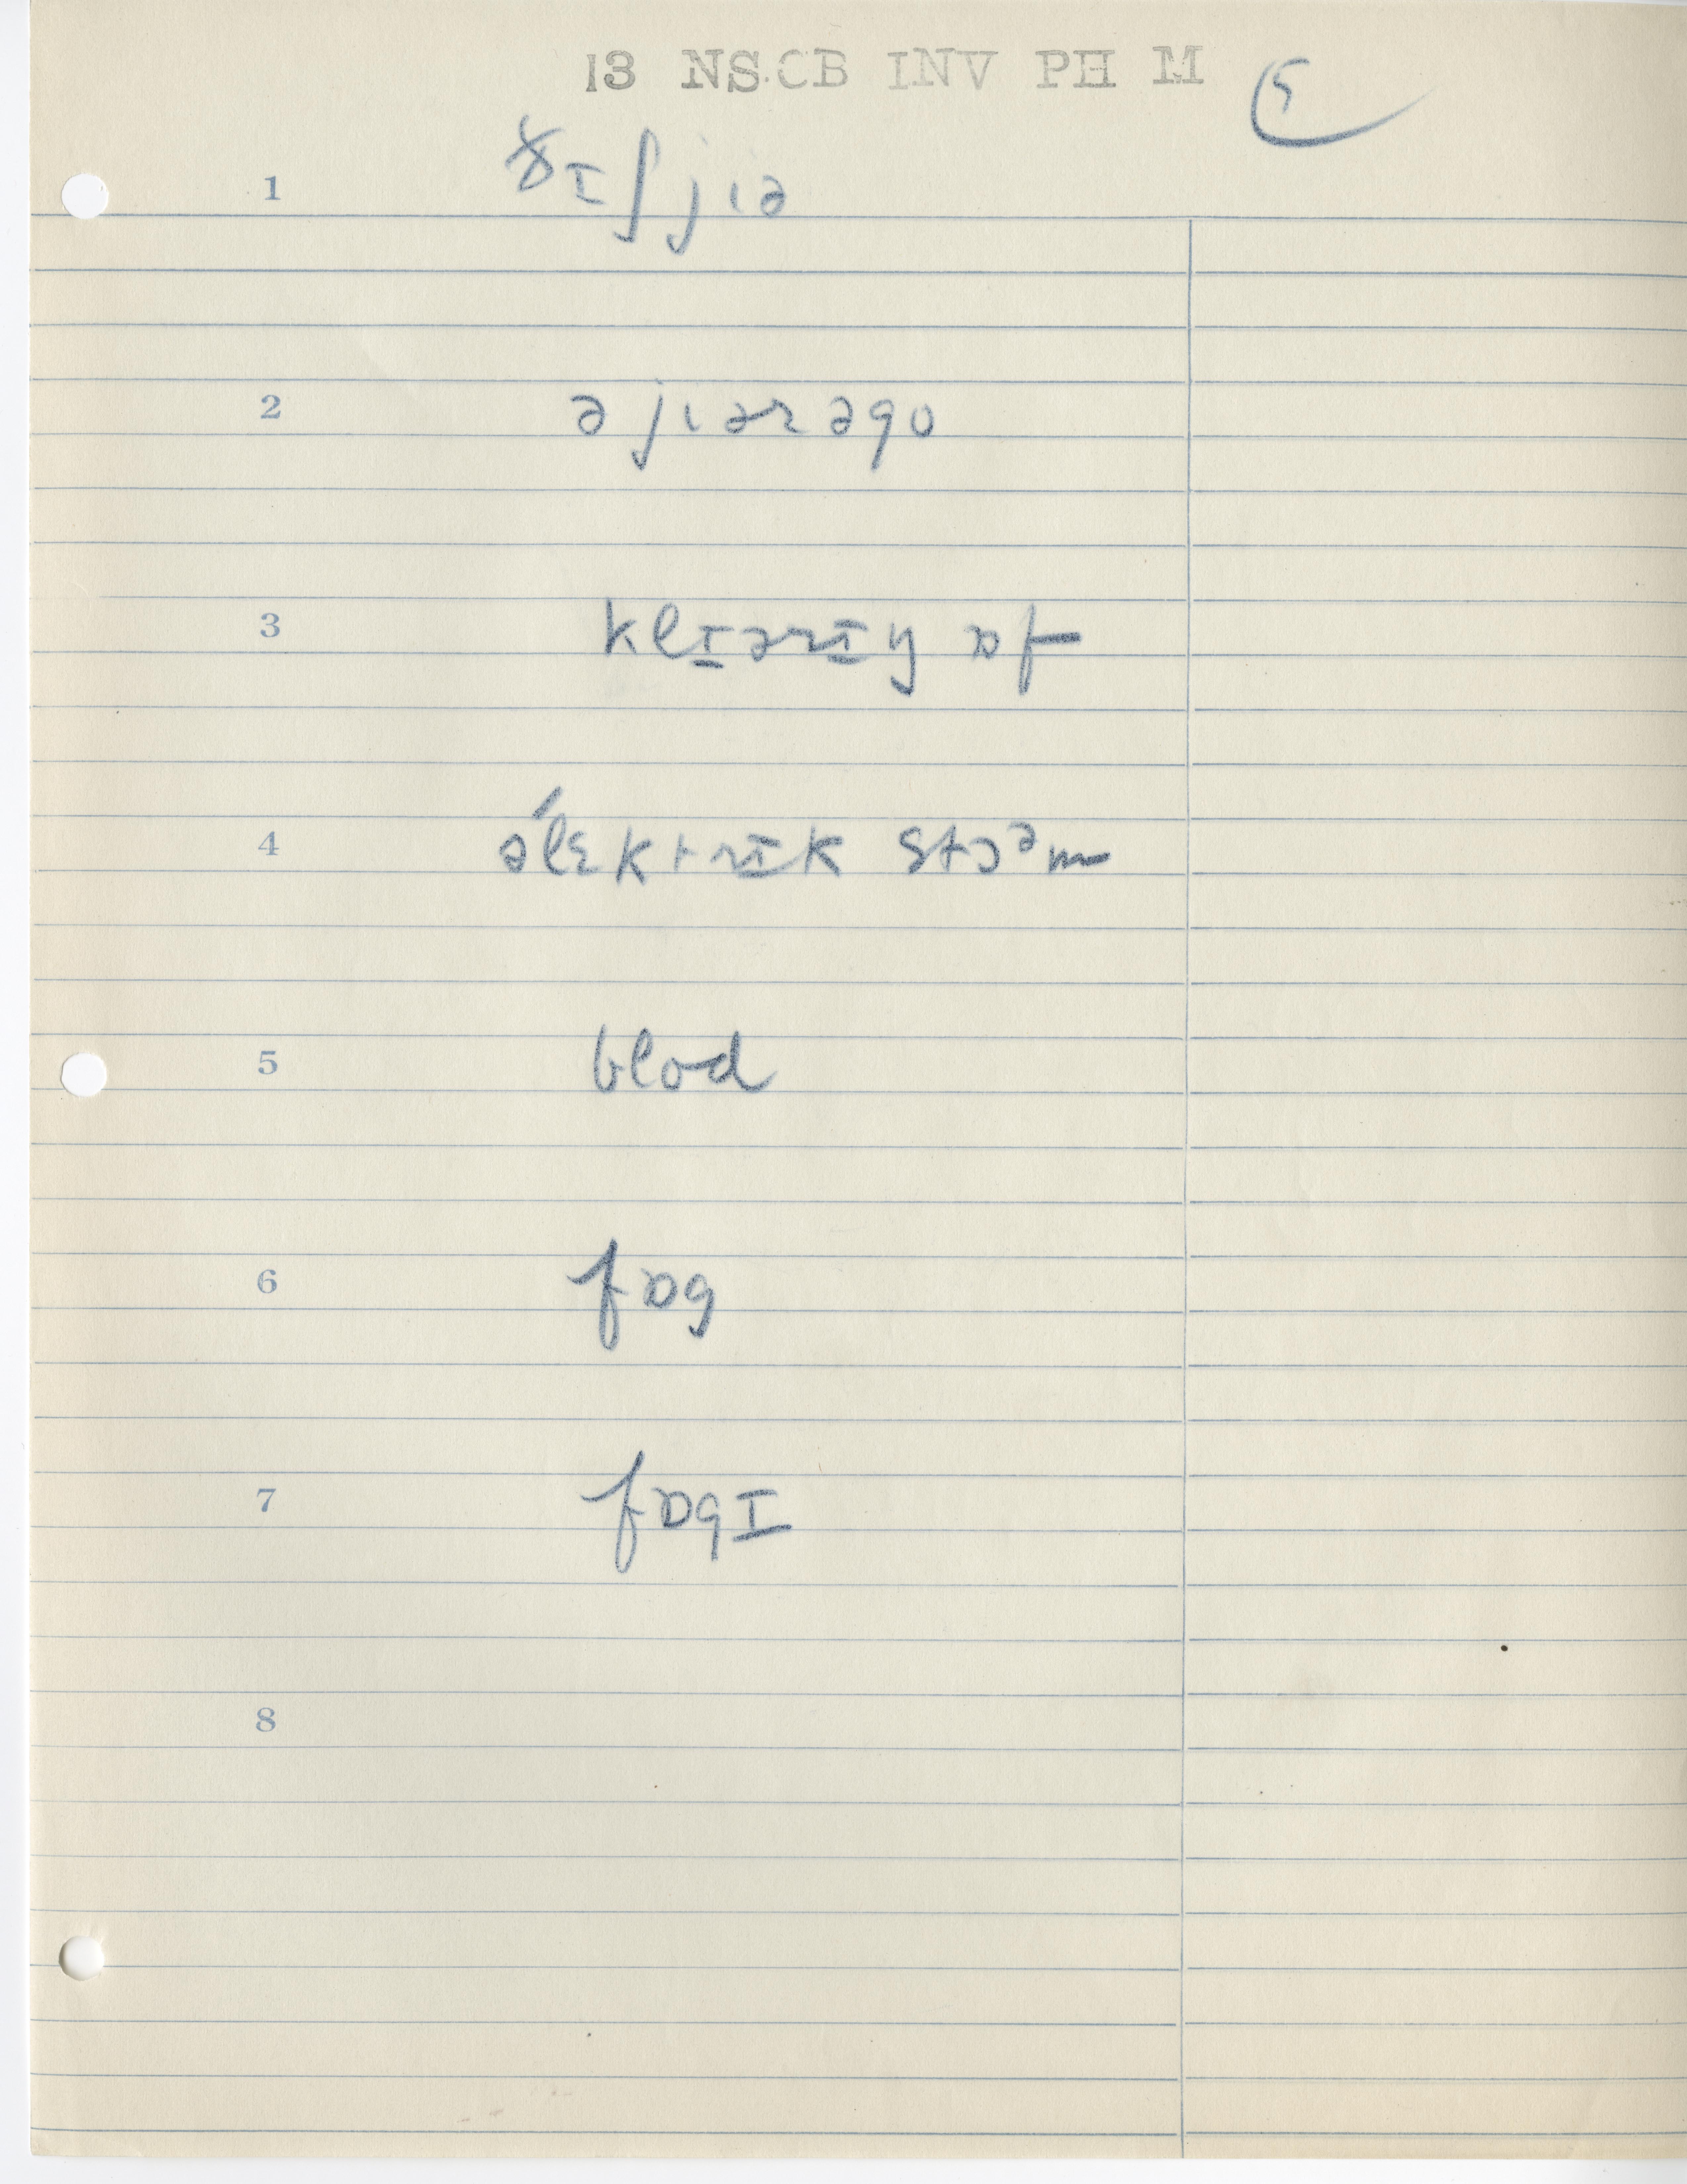 13 NS.CB INV PH M 5
1 ðɪʃ jiə
2 ə jiər əgo
3 klɪərɪŋ ɒf
4 əlɛ́ktrɪk stɔᵊm
5 blod
6 fɒg
7 fɒgɪ
8